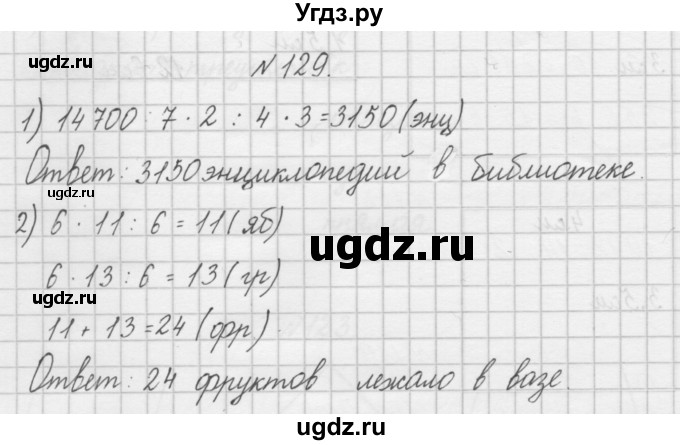 Угдз.ру
ugdz.ru
N 129.
1) 14700 : 7 · 2 : 4 · 3 = 3150 (энц)
Ответ: 3150 энциклопедий в библиотеке.
ugdz.ru
2) 6 · 11 : 6 = 11 (яб)
ugdz.ru
6 · 13 : 6 = 13 (гр)
ugdz.ru
11 + 13 = 24 (фр).
Ответ: 24 фруктов лежало в вазе.
ugdz.ru